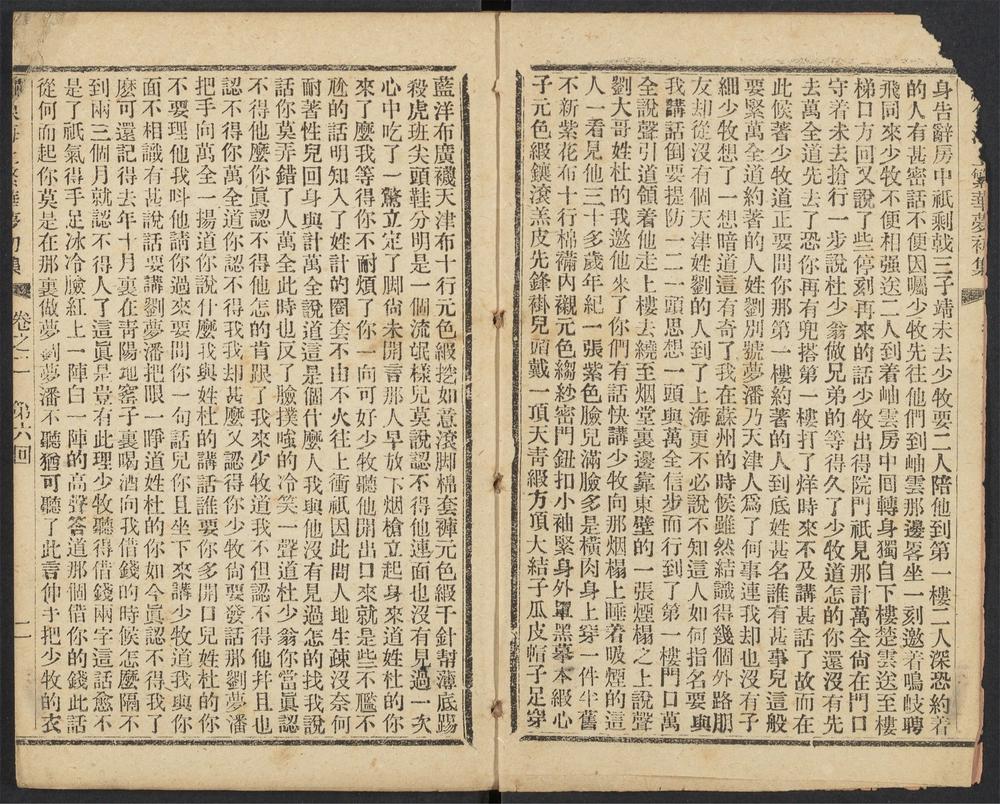 繁華夢初集
身告辭房中祇剩戟三子靖未去少牧要二人陪他到第一樓二人深恐約着
的人有甚密話不便因囑少牧先往他們到岫雲那邊畧坐一刻邀着鳴岐聘
飛同來少牧不便相强送二人到着岫雲房中囘轉身獨自下樓楚雲送至樓
梯口方回又說了些停刻再來的話少牧出得院門祇見那計萬全尙在門口
守着未去搶行一步說杜少翁做兄弟的等得久了少牧道怎的你還沒有先
去萬全道先去了恐你再有兜搭第一樓打了烊時來不及講甚話了故而在
此候著少牧道正要問你那第一樓約著的人到底姓甚名誰有甚事兒這般
要緊萬全道約著的人姓劉別號夢潘乃天津人爲了何事連我却也沒有子
細少牧想了一想暗道這有奇了我在蘇州的時候雖然結識得幾個外路朋
友却從沒有個天津姓劉的人到了上海更不必說不知這人如何指名要與
我講話倒要提防一二一頭思想一頭與萬全信步而行到了第一樓門口萬
全說聲引道領着他走上樓去繞至烟堂裏邊靠東壁的一張煙榻之上說聲
劉大哥姓杜的我邀他來了你們有話快講少牧向那烟榻上睡着吸煙的這
人一看見他三十多歲年紀一張紫色臉兒滿臉多是橫肉身上穿一件半舊
不新紫花布十行棉襔內襯元色縐紗密門鈕扣小袖緊身外罩黑摹本緞心
子元色緞鑲滾羔皮先鋒褂兒頭戴一頂天靑緞方頂大結子瓜皮帽子足穿
藍洋布廣襪天津布十行元色緞挖如意滾脚棉套褲元色緞千針幫薄底踢
殺虎班尖頭鞋分明是一個流氓樣兒莫說認不得他連面也沒有見過一次
心中吃了一驚立定了脚尙未開言那人早放下烟槍立起身來道姓杜的你
來了麼我等得你不耐煩了你一向可好少牧聽他開出口來就是些不尶不
尬的話明知入了姓計的圈套不由不火往上衝祇因此間人地生疎沒奈何
耐著性兒回身與計萬全說道這是個什麼人我與他沒有見過怎的找我說
話你莫弄錯了人萬全此時也反了臉撲嗤的冷笑一聲道杜少翁你當眞認
不得他麼你眞認不得他怎的肯跟了我來少牧道我不但認不得他幷且也
認不得你萬全道你認不得我我却甚麼又認得你少牧尙要發話那劉夢潘
把手向萬全一揚道你說什麼我與姓杜的講話誰要你多開口兒姓杜的你
不要理他我呌他請你過來要問你一句話兒你且坐下來講少牧道我與你
面不相識有甚說話要講劉夢潘把眼一睜道姓杜的你如今眞認不得我了
麼可還記得去年十月裏在靑陽地窰子裏喝酒向我借錢的時候怎麼隔不
到兩三個月就認不得人了這眞是豈有此理少牧聽得借錢兩字這話愈不
是了祇氣得手足冰冷臉紅上一陣白一陣的高聲答道那個借你的錢此話
從何而起你莫是在那裏做夢劉夢潘不聽猶可聽了此言伸手把少牧的衣
繁華夢初集
卷之二 第六回
一